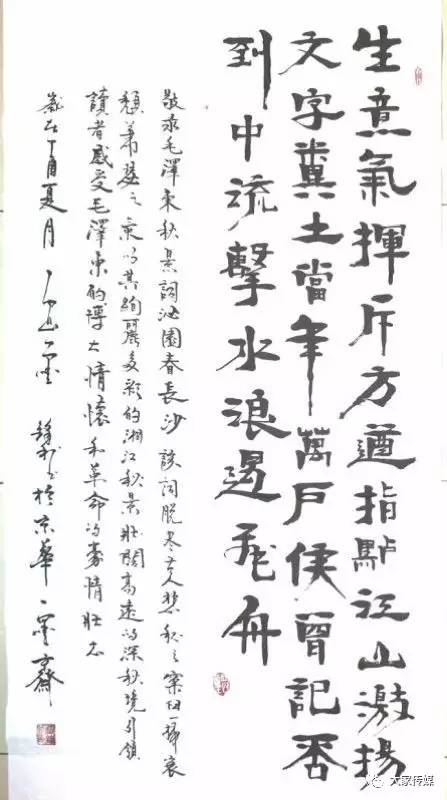 生意氣揮斥方遒指點江山激揚
文字糞土當年萬户侯曾記否
到中流擊水浪遏飛舟
敬录毛澤東秋景詞沁園春長沙該詞脱尽古人悲秋之窠臼一掃衰
頹蕭瑟之氣以其絢麗多彩的湘江秋景壯闊高遠的深秋境引領
讀者感受毛澤東的博大情懷和革命的豪情壯志
歲在丁酉夏月 於京華一墨齋
大家传媒